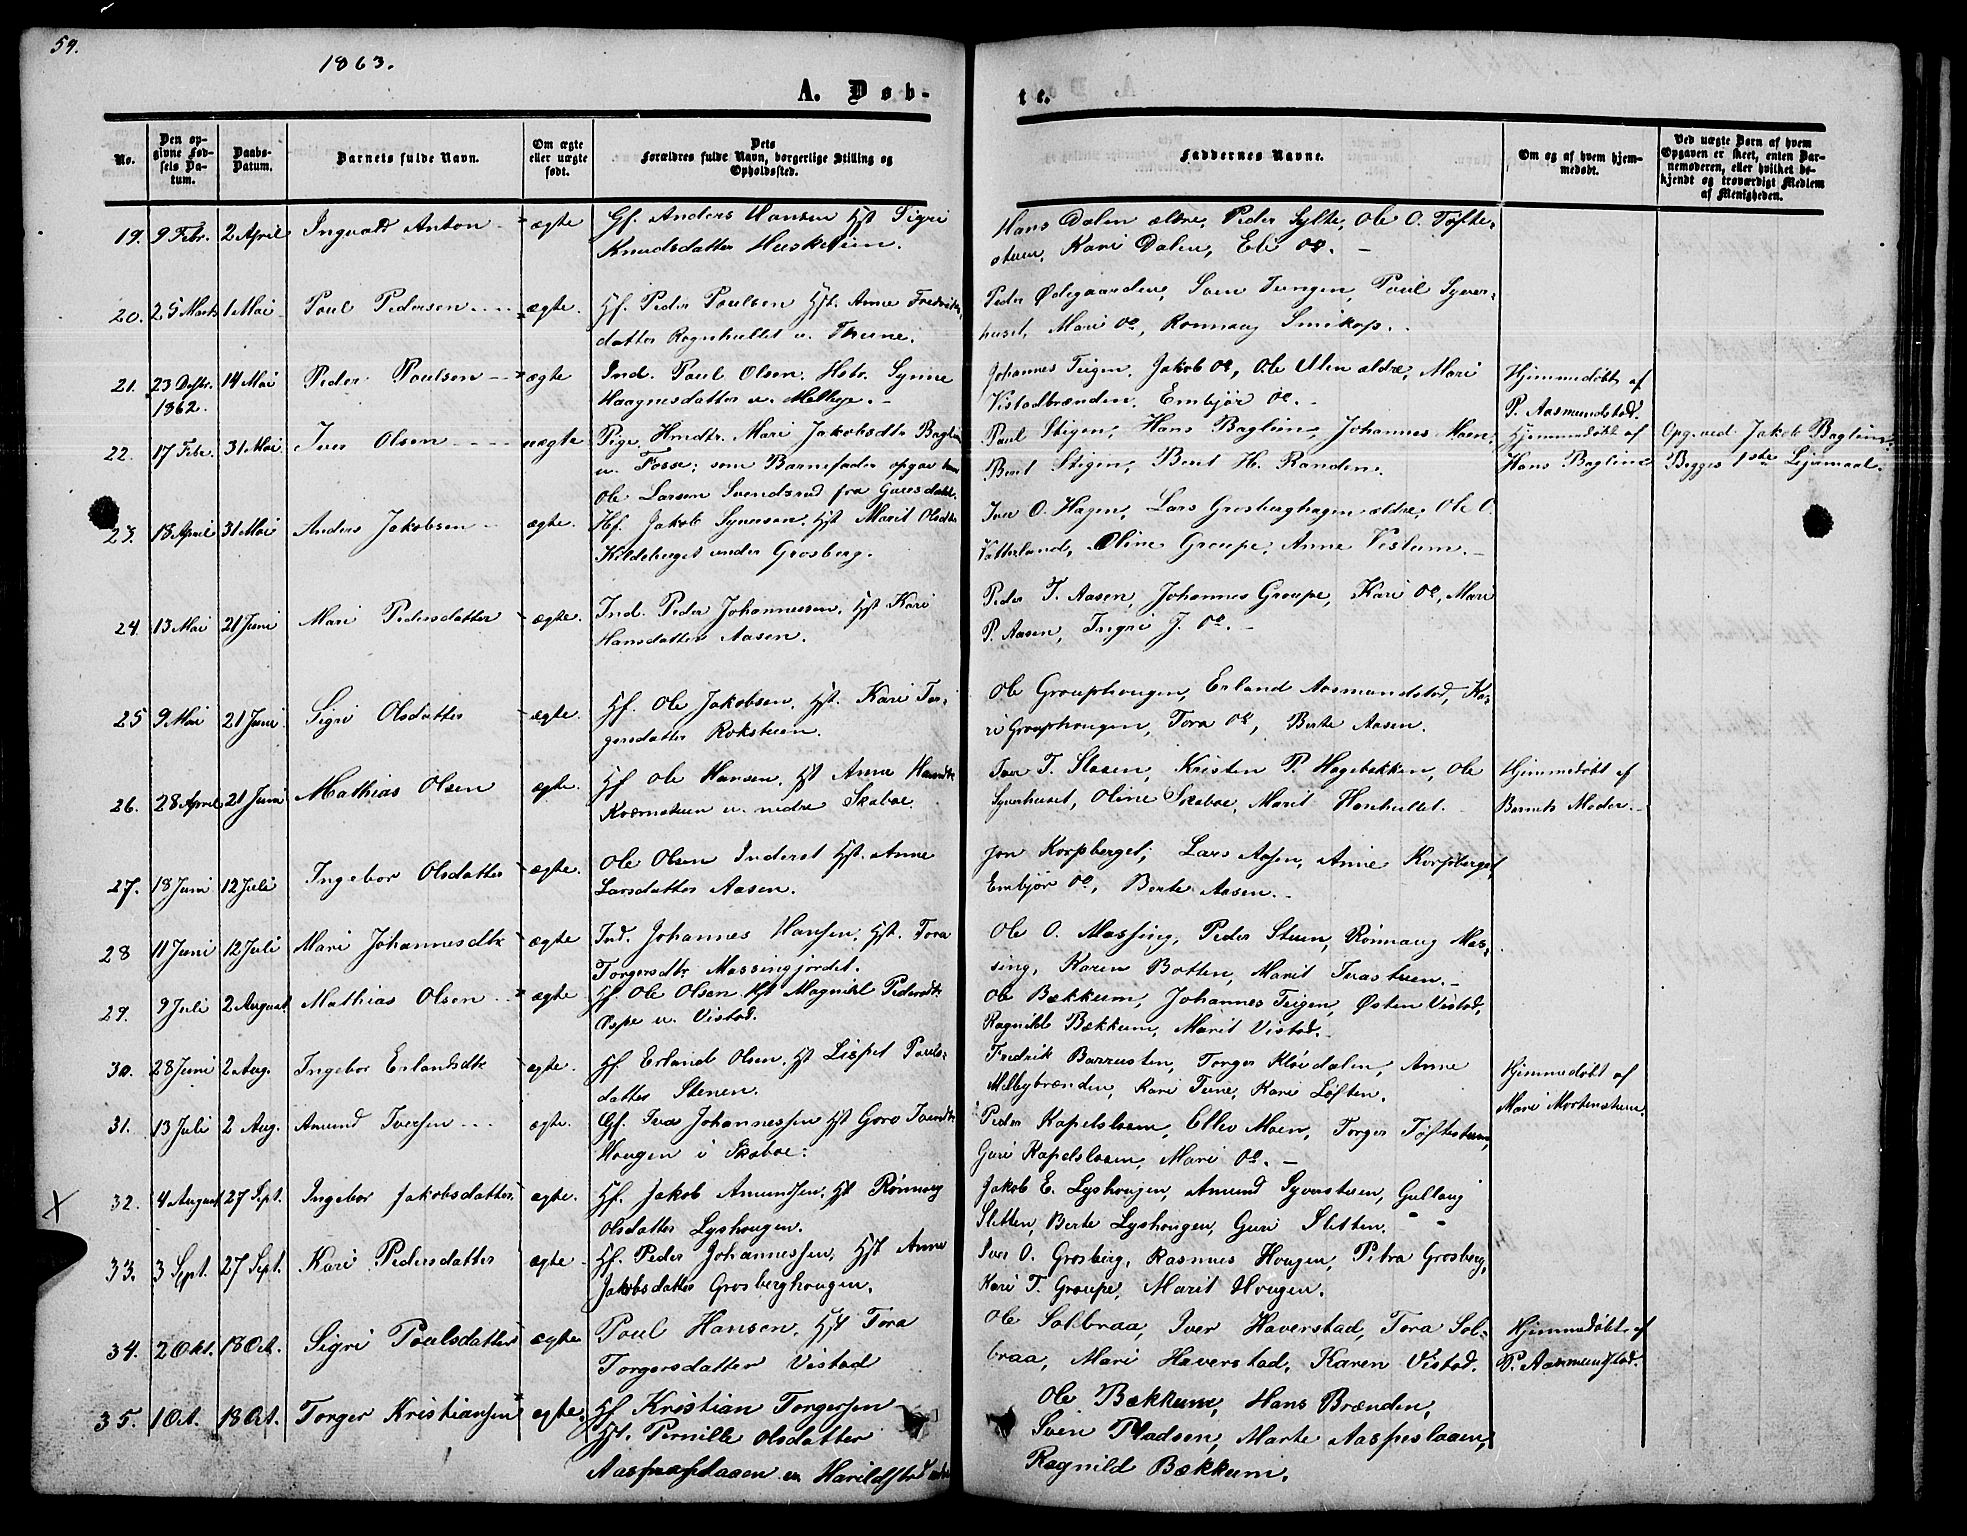 59.
1863.
A. Døb-
te.
No.
Den op-
givne Fød-
sels Da-
tum.
Daabs-
Datum.
Barnets fulde Navn.
Om ægte
eller uægte
født.
Dets
Forældres fulde Navn, borgerlige Stilling og
Opholdssted.
Faddernes Navne.
Om og af hvem hjem-
medøbt.
Ved uægte Børn af hvem
Opgaven er skeet, enten Bar-
nemoderen, eller hvilket be-
kjendt og troværdigt Medlem
af Menigheden.
19. 9 Febr. 2 April Ingvald Anton ægte Gf. Anders Hansen Hst Sigri
Knudsdatter
Hans Dalen ældre, Peder Sylte, Ole O. Tofte-
steen, Kari Dalen, Eli do. -
20. 25 Marts 1 Mai Poul Pedersen ægte. Hf. Peder Poulsen Hst. Anne Fredriks-
datter Rognhullet u. Thune.
Peder Ødegaarden, Sven Tungen, Poul Syver-
huset, Mari do, Rønnaug
21. 23 Desbr. 14 Mai Peder Poulsen ægte Ind. Poul Olsen, Hstr. Synne
1862.
Haagensdatter u. Melbye. -
Johannes Teigen, Jakob do, Ole ældre, Mari
Vistadbrænden, Embjør do. -
Hjemmedøbt af
P. Aasmundstad.
22. 17 Febr. 31 Mai Iver Olsen uægte Pige, Hmdtr. Mari Jakobsdtr Baglien
u. Fosse; som Barnefader opgav hun
Ole Larsen Svendsrud fra Gausdahl.
Paul Stigen, Hans Baglien, Johannes Moen,
Berit Stigen, Berit H. Randen.
Hjemmedøbt af
Hans Baglien
Opg. ved Jakob Baglien.
Begges 1ste Lejermaal.
23. 18 April 31 Mai Anders Jakobsen ægte. Hf. Jakob Syversen, Hst Marit Olsdatter
Kildeberget under Grosberg.
Iver O. Hagen, Lars Grosberghagen ældre, Ole O.
Vatterland, Oline Groupe, Anne Vislum. -
24. 13 Mai 21 Juni Mari Pedersdatter ægte. Ind. Peder Johannessen, Hst Kari
Hansdatter Aasen.
Peder T. Aasen, Johannes Groupe, Kari do, Mari
P. Aasen, Ingri J. do. -
25 9 Mai 21 Juni Sigri Olsdatter ægte. Hf. Ole Jakobsen, Hst. Kari Tor-
gersdatter Roksteen.
Ole Grouphougen, Erland Aasmundstad, Ka-
ri Grouphougen, Tora do, Berte Aasen.
26. 28 April 21 Juni Mathias Olsen ægte. Hf Ole Hansen, Hst Anne Hansdtr
Kværnsteen u. nedre Skaboe
Iver T. Sloen, Kristen P. Hagebakken, Ole
Syverhuset, Oline Skaboe, Marit Hanhullet.
Hjemmedøbt af
Barnets Moder. -
27. 18 Juni 12 Juli Ingebor Olsdatter ægte. Ole Olsen Inderst Hst. Anne
Larsdatter Aasen.
Jon Korpberget, Lars Aasen, Anne Korpberget,
Embjør do, Berte Aasen. -
28 11 Juni 12 Juli Mari Johannesdtr ægte Ind. Johannes Hansen, Hst. Tora
Torgersdtr. Massingjordet.
Ole O. Massing, Peder Steen, Rønnaug Mas-
sing, Karen Botten, Marit -
29. 9 Juli 2 August Mathias Olsen ægte Hf. Ole Olsen Hst Magnild Pedersdtr
Espe u. Vistad.
Ole Bækkum, Johannes Teigen, Østen Vistad,
Ragnild Bækkum, Marit Vistad. -
30. 28 Juni 2 Aug. Ingebor Erlandsdtr ægte. Hf. Erland Olsen, Hst Lispet Pouls-
datter Stenen.
Fredrik Barrusten, Torger Kløvdalen, Anne
Melbybrænden, Kari Teine, Kari Løften.
Hjemmedøbt af
Mari Mortensteen.
31. 13 Juli 2 Aug. Amund Iversen ægte. Gf. Iver Johannessen Hst Goro Iversdtr
Hougen i Skaboe.
Peder Kapelslaaen, Ellev Moen, Torger Toftesteen,
Guri Kapelslaaen, Mari do. -
32. 4 August 27 Sept. Ingebor Jakobsdatter ægte. Hf. Jakob Amundsen, Hst Rønnaug
Olsdatter Lyshougen.
Jakob E. Lyshougen, Amund Syversteen, Gullaug
Sletten, Berte Lyshougen, Guri Sletten.
X
33. 3 Sept. 27 Sept. Kari Pedersdatter ægte. Hf. Peder Johannessen, Hst Anne
Jakobsdatter Grosberghougen.
Iver O. Grosberg, Rasmus Hougen, Petra Grosberg,
Kari T. Groupe, Marit Hougen.
34. 2 Okt. 18 Oct. Sigri Poulsdatter ægte Poul Hansen, Hst Tora
Torgersdatter Vistad
Ole Solbraa, Iver Haverstad, Tora Sol-
braa, Mari Haverstad, Karen Vistad.
Hjemmedøbt af
P. Aasmundstad.
35. 1 Oct. 18 Oct. Torger Kristiansen ægte. Hf Kristian Torgersen
Hst. Pernille Olsdatter
u Harildstad
Ole Bækkum, Hans Brænden,
Sven Pladsen, Marte Aaspeslaaen,
Ragnild Bækkum.